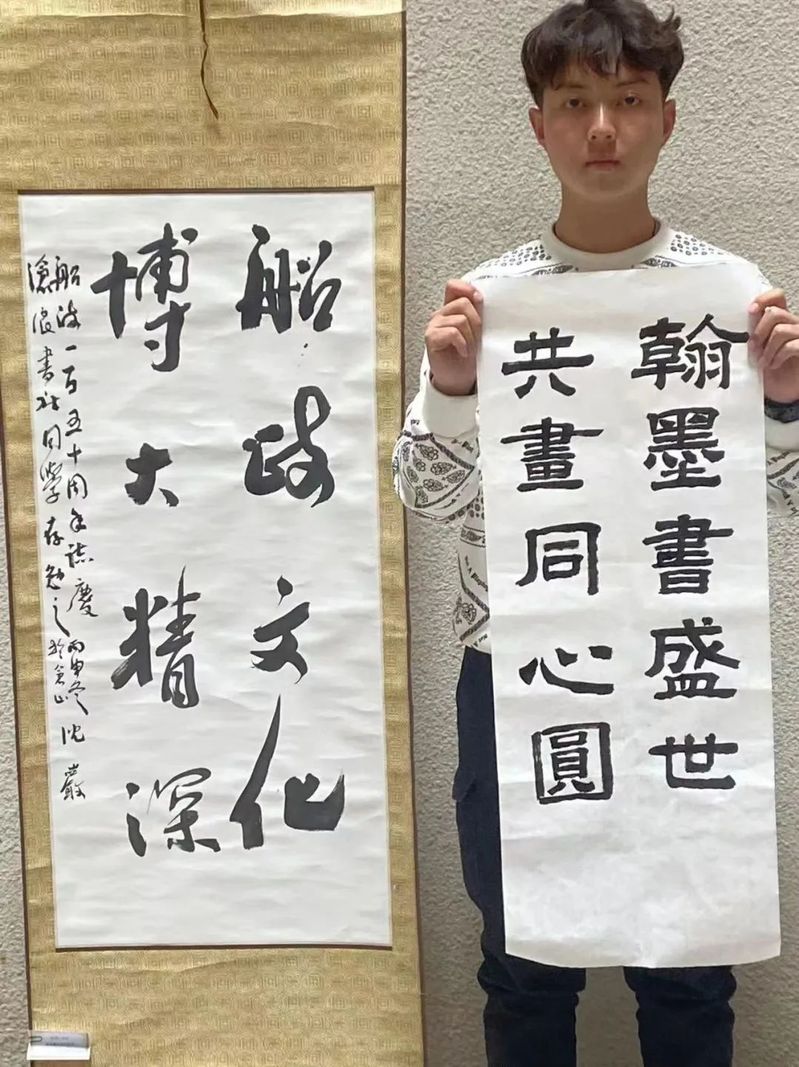 船政文化
博大精深
船政一百五十周年誌慶
滄浪書社同學存勉之
丙申冬
於倉山
沈巖
翰墨書盛世
共畫同心圓